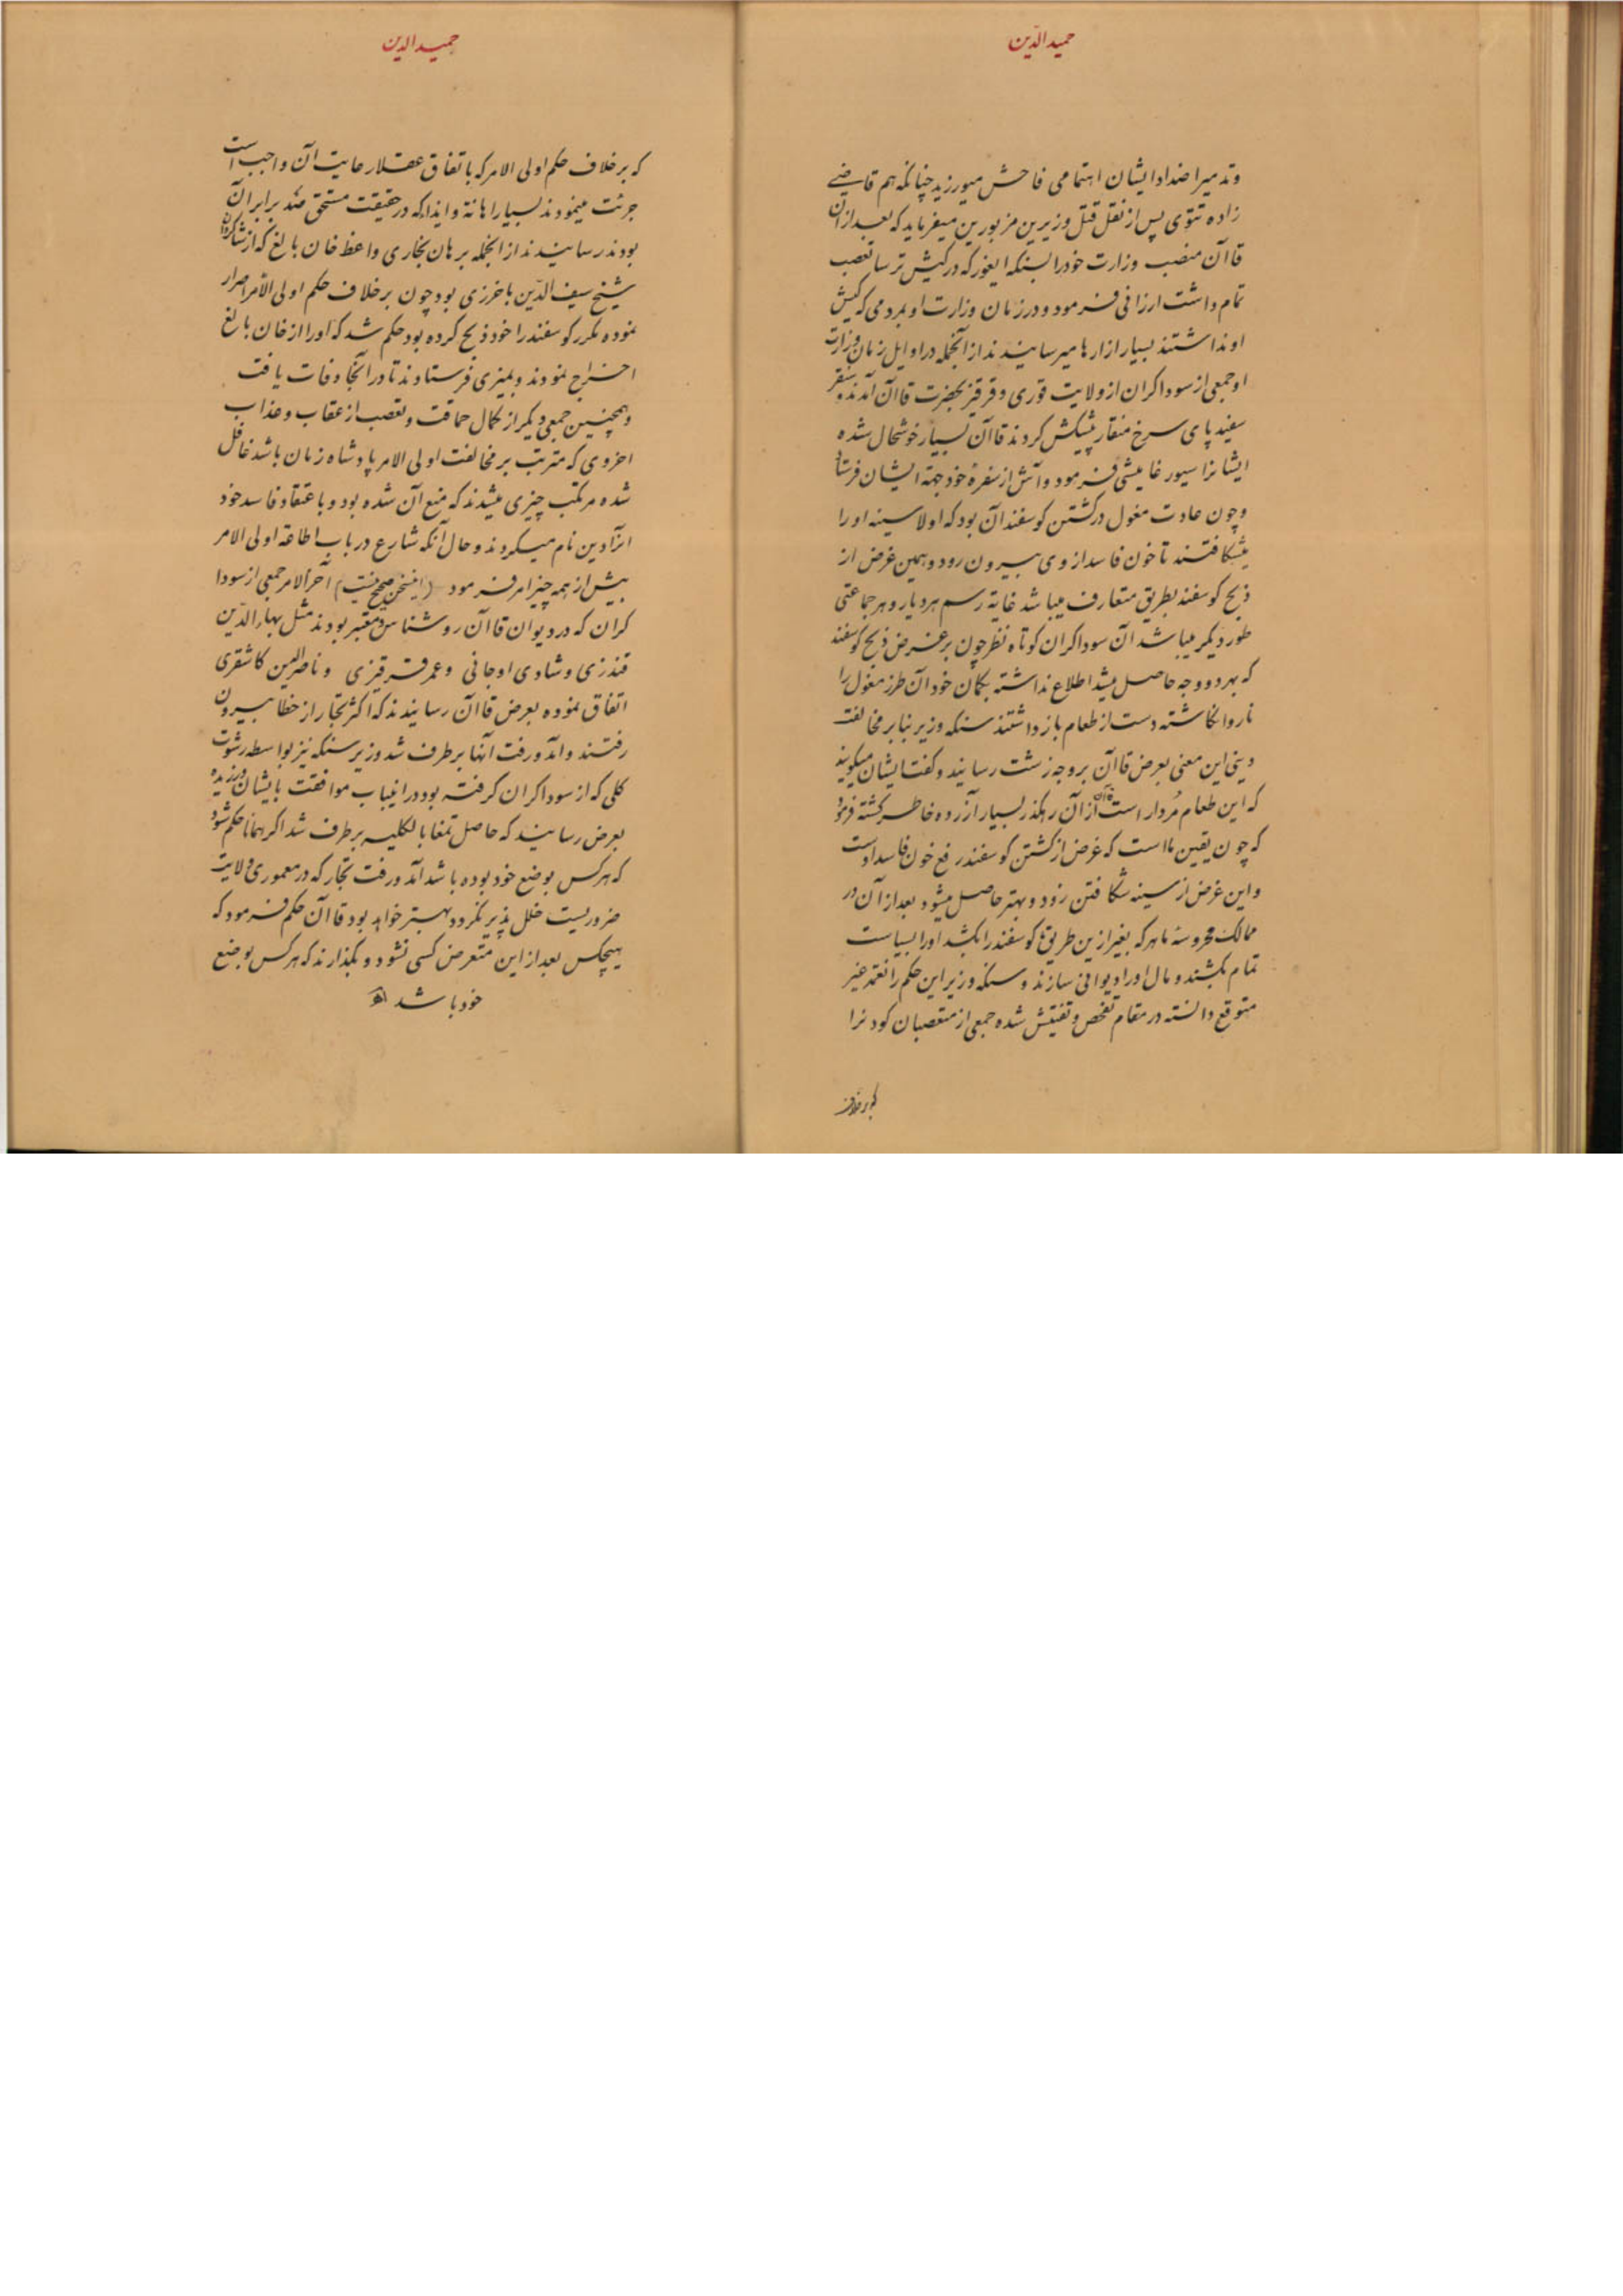 حمید الدّین
و تدمیر اضداد ایشان اهتمامی فاحش میورزید چنانکه هم قاضی
زاده تتوی پس از نقل قتل وزیرین مزبورین میفرماید که بعد از آن
قاآن منصب وزارت خود را بسنکه ایغور که در کیش ترسا تعصب
تمام داشت ارزانی فرمود و در زمان وزارت او بمردمی که کیش
او نداشتند بسیار ازارها میرسانیدند از آنجمله در اوایل زمان وزارت
او جمعی از سوداکران از ولایت قوری و قرقیز بحضرت قاآن آمدند و سنقر
سفید پای سرخ منقار پیشکش کردند قاآن بسیار خوشحال شده
ایشانرا سیورغامیشی فرمود و آش از سفرهٔ خود جهة ایشان فرستاد
و چون عادت مغول در کشتن کوسفند آن بود که اولا سینه او را
میشکافتند تا خون فاسد از وی بیرون رود و همین غرض از
ذبح کوسفند بطریق متعارف میباشد غایة رسم هر دیار و هر جماعتی
طور دیکر میباشد آن سوداکران کوتاه نظر چون بر غرض ذبح کوسفند
که بهر دو وجه حاصل میشد اطلاع نداشته بکمان خود آن طرز مغول را
ناروا انکاشته دست از طعام باز داشتند سنکه وزیر بنا بر مخالفت
دینی این معنی بعرض قاآن بروجه زشت رسانید و کفت ایشان میکویند
که این طعام مُردار است قاآن از آن رهکذر بسیار آزرده خاطر کشته فرمود
که چون یقین ما است که غرض از کشتن کوسفند رفع خون فاسد اوست
و این غرض از سینه شکافتن زود و بهتر حاصل میشود بعد از آن در
ممالک محروسهٔ ما هر که بغیر ازین طریق ها کوسفند را بکشد او را بسیاست
تمام بکشند و مال او را دیوانی سازند و سنکه وزیر این حکم را نعمة غیر
متوقع دانسته در مقام تفحص و تفتیش شده جمعی از متعصبان کودن را
که بر خلاف
حمید الدین
که بر خلاف حکم اولی الامر که باتفاق عقلا رعایت آن واجب است
جرئت مینمودند بسیار اهانة و ایذا که در حقیقت مستحق صد برابر آن
بودند رسانیدند از انجمله برهان بخاری واعظ خان بالغ که از شاکردان
شیخ سیف الدّین باخرزی بود چون بر خلاف حکم اولی الأمر اصرار
نموده مکرر کوسفند را خود ذبح کرده بود حکم شد که او را از خان بالغ
اخراج نمودند و بمنزی فرستادند تا در آنجا وفات یافت
و همچنین جمعی دیکر از کمال حماقت و تعصب از عقاب و عذاب
اخروی که مترتب بر مخالفت اولی الامر پادشاه زمان باشد غافل
شده مرتکب چیزی میشدند که منع آن شده بود و باعتقاد فاسد خود
انرا دین نام میکردند و حال آنکه شارع در باب اطاعة اولی الامر
بیش از همه چیز امر فرمود (این سخن صحیح نیست) آخر الامر جمعی از سودا
کران که در دیوان قاآن روشناس و معتبر بودند مثل بهاء الدّین
قندزی و شادی اوجانی و عمر قرقیزی و ناصر الدین کاشقری
اتفاق نموده بعرض قاآن رسانیدند که اکثر تجار از خطا بیرون
رفتند و آمد و رفت آنها بر طرف شد وزیر سنکه نیز بواسطه رشوت
کلی که از سوداکران کرفته بود در اینباب موافقت بایشان ورزیده
بعرض رسانید که حاصل تمغا بالکلیه بر طرف شد اکر همانا حکم شود
که هر کس بوضع خود بوده باشد آمد و رفت تجار که در معموری ولایت
ضروریست خلل پذیر نکردد بهتر خواهد بود قاآن حکم فرمود که
هیچکس بعد از این متعرض کسی نشود و بکذارند که هر کس بوضع
خود باشد اه